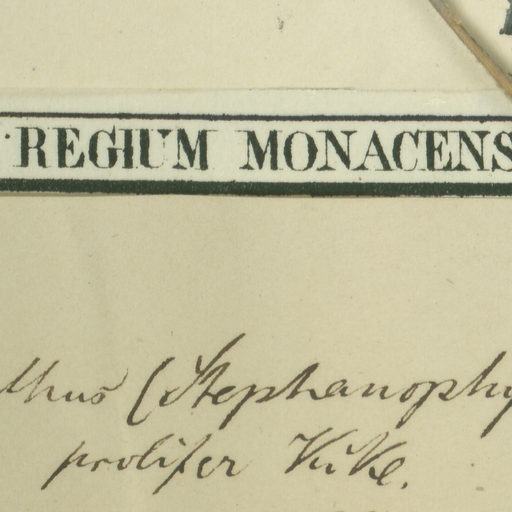 REGIUM MONACENS
thus (Stephanophy
prolifer KuKe.